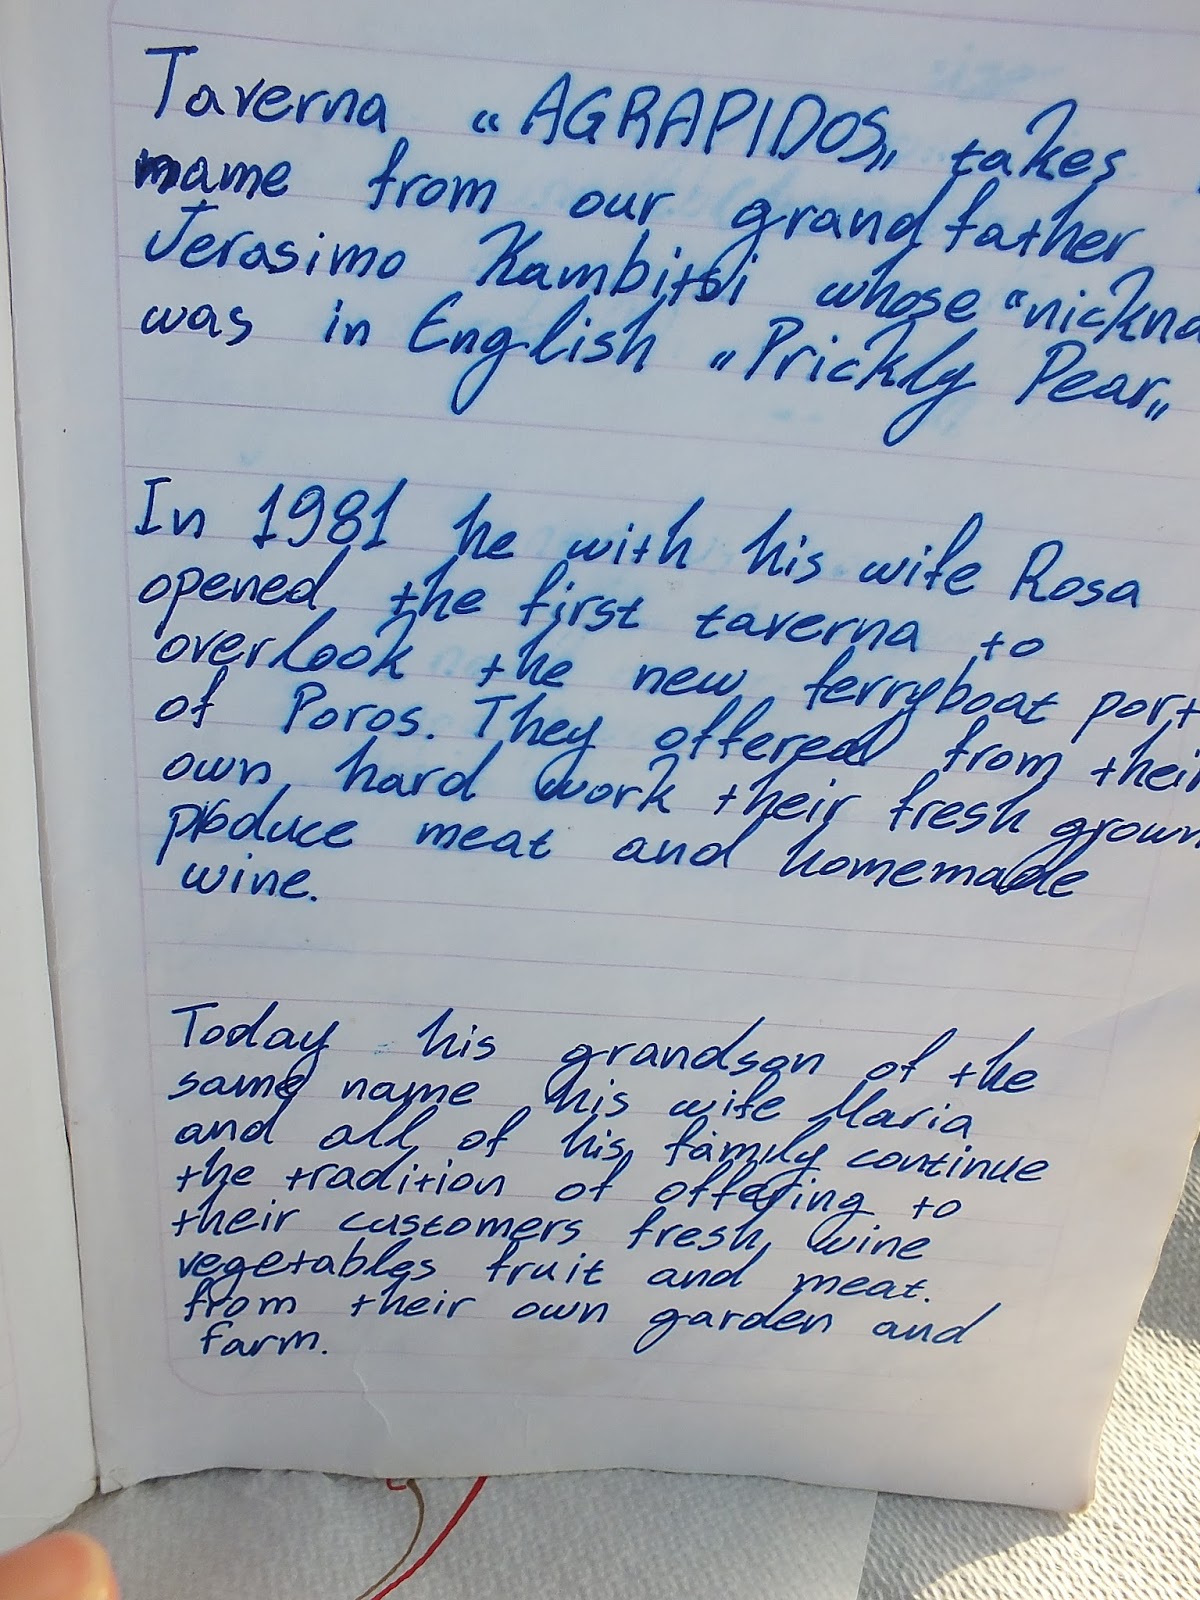 Taverna "AGRAPIDOS" takes
name from our grandfather
Jerasimo Kambitsi whose "nickna
was in English "Prickly Pear"
In 1981 he with his wife Rosa
opened the first taverna to
overlook the new ferryboat port
of Poros. They offered from their
own hard work their fresh grown
produce meat and homemade
wine.
Today his grandson of the
same name his wife Maria
and all of his family continue
the tradition of offering to
their customers fresh wine
vegetables fruit and meat.
from their own garden and
farm.